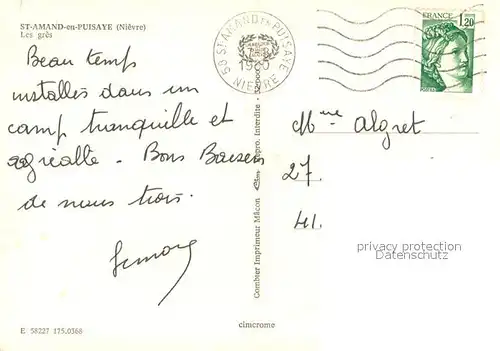 ST-AMAND-en-PUISAYE (Nièvre)
Les grès
Beau temps
installés dans un
camp tranquille et
agréable - Bons Baisers
de nous trois.
58 ST AMAND EN PUISAYE
NIEVRE
FRANCE
1,20
POSTES
Mme Algret
27.
41.
Combier Imprimeur Mâcon Repro. Interdite
privacy protection
Datenschutz
E 58227 175.0366
cimcrome